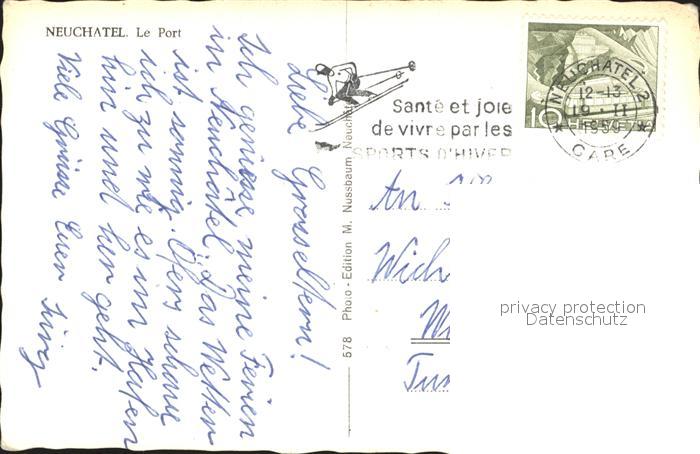 NEUCHATEL. Le Port
Liebe Grosseltern!
Ich geniesse meine Ferien
in Neuchâtel. Das Wetter
ist sonnig. Öfters schaue
ich zu wie es im Hafen
hin und her geht.
Viele Grüsse Euer
578 Photo-Edition M. Nussbaum Neuchât
Santé et joie
de vivre par les
SPORTS D'HIVER
NEUCHATEL 2
12-13
19-11
1959
GARE
10
HELVETIA
An
Wich
privacy protection
Datenschutz